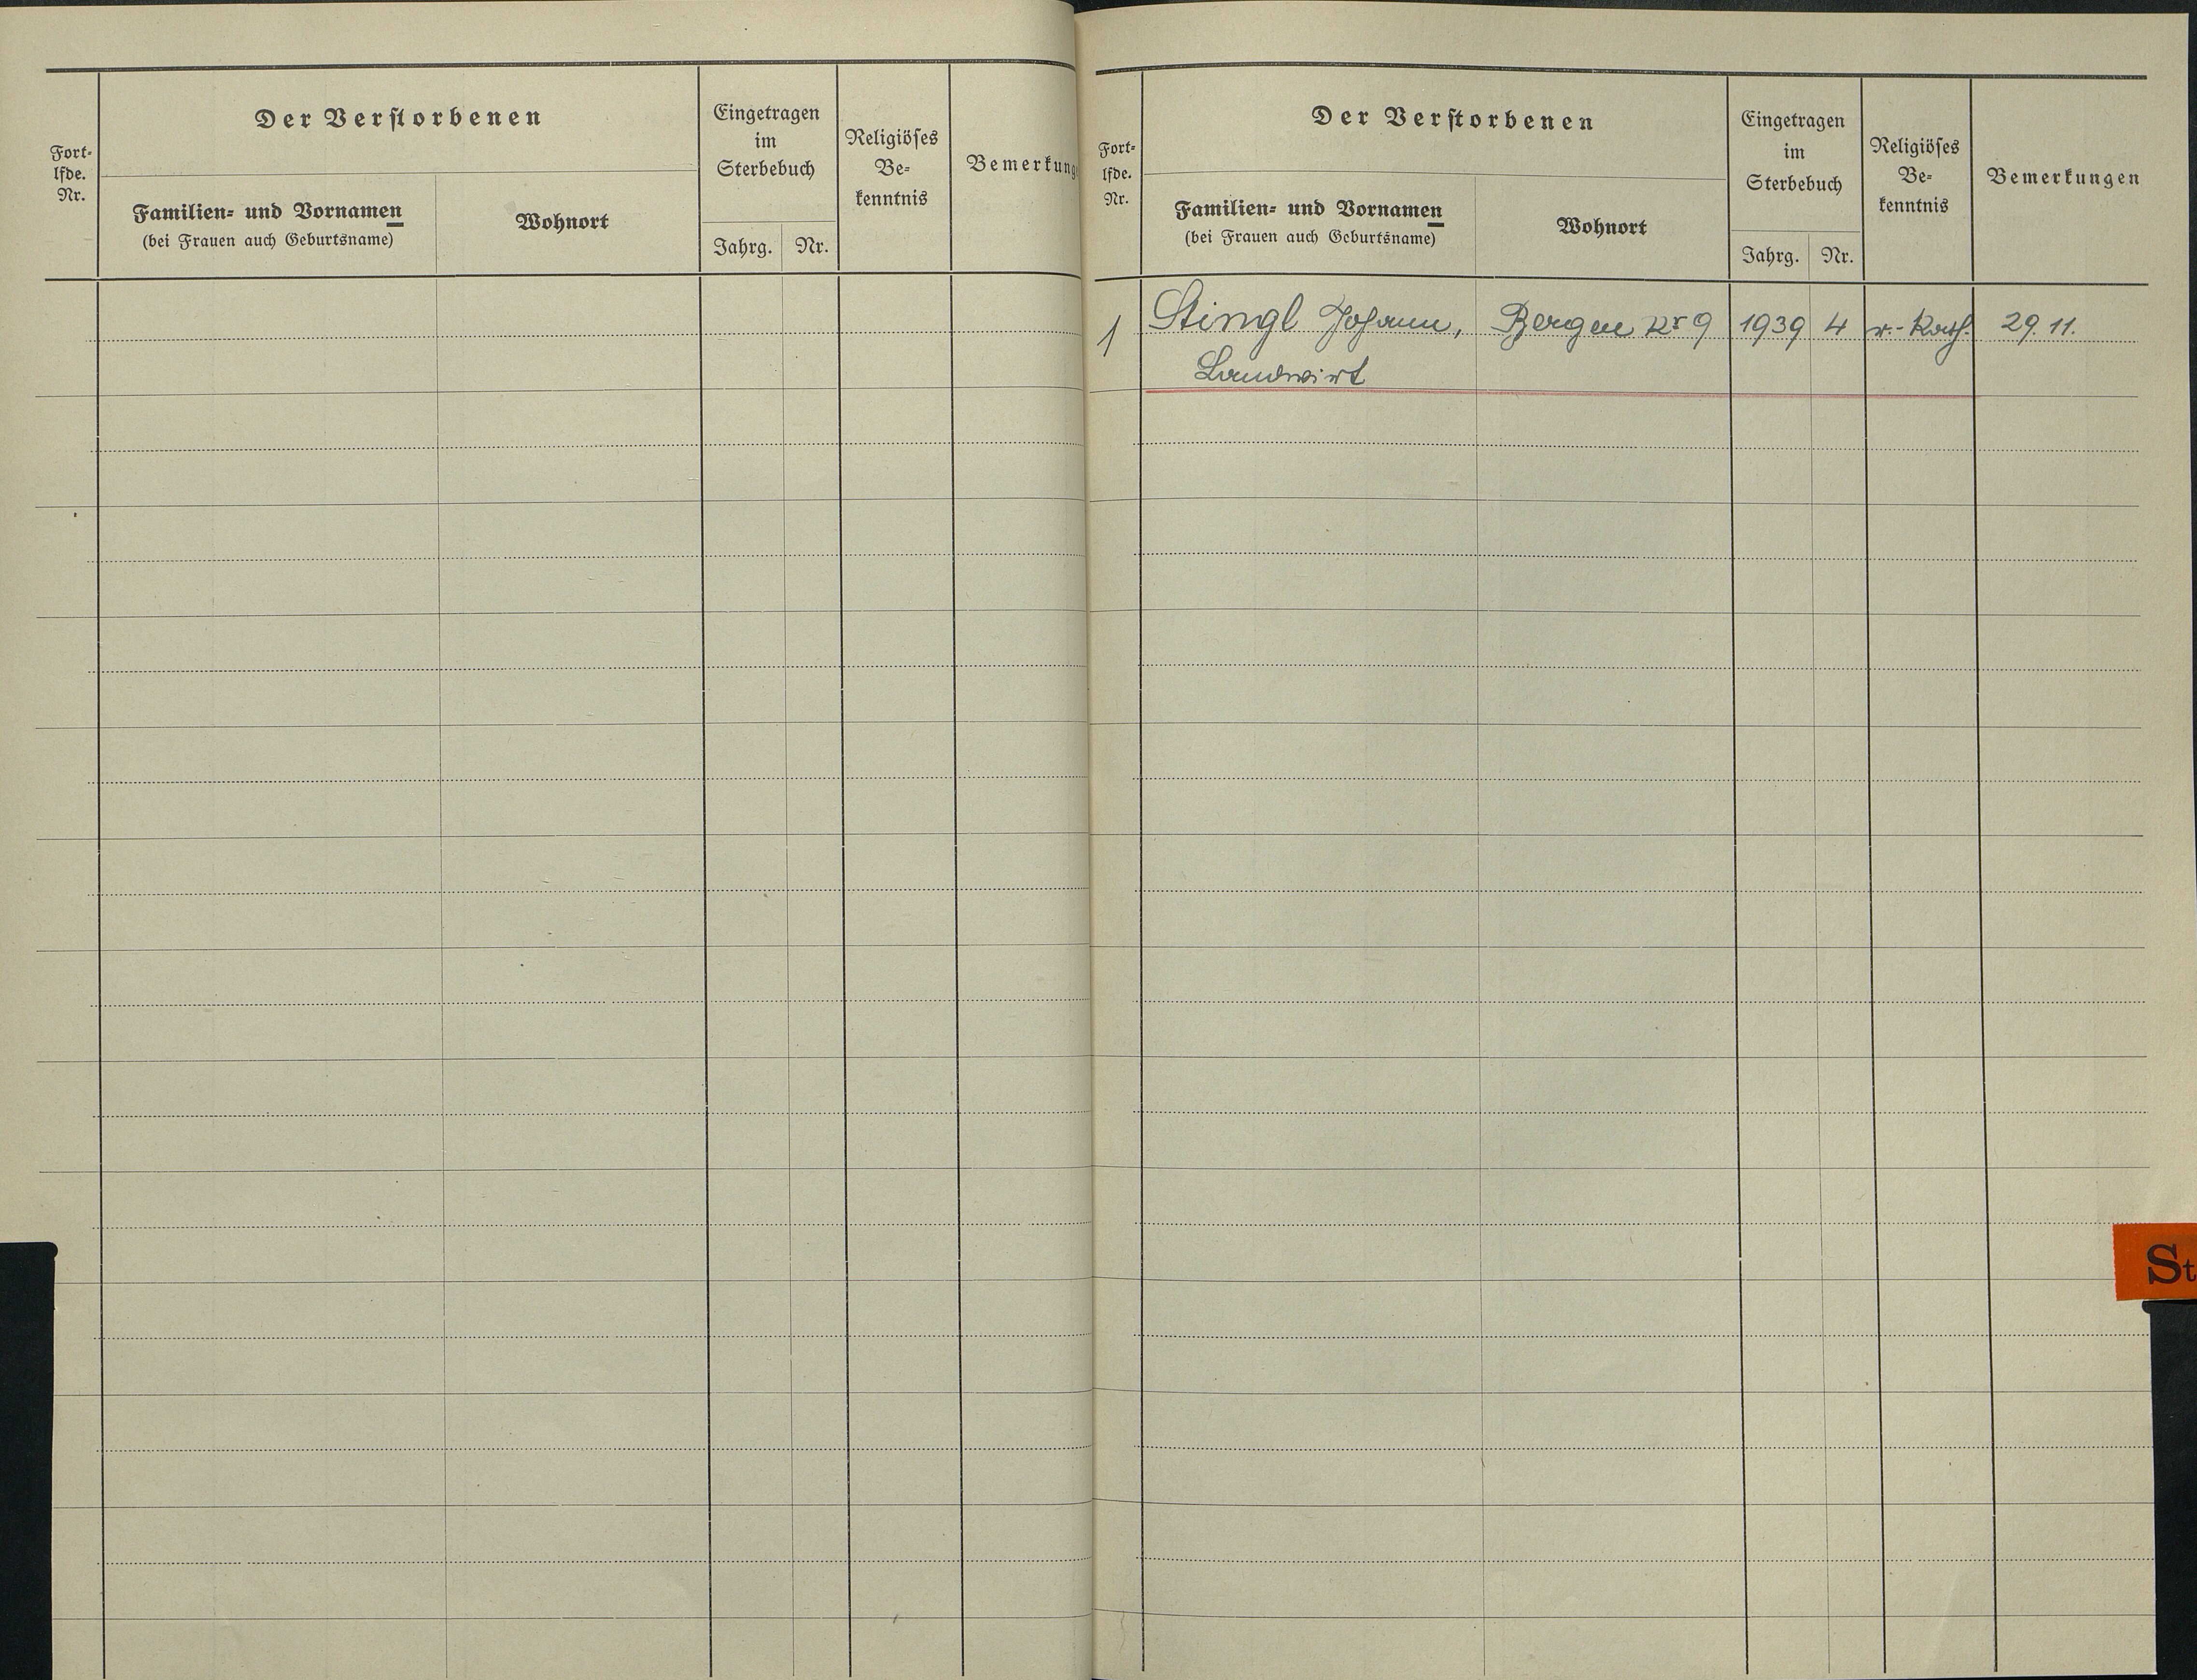 Fort-
lfde.
Nr.
Der Verstorbenen
Familien- und Vornamen
(bei Frauen auch Geburtsname)
Wohnort
Eingetragen
im
Sterbebuch
Jahrg.
Nr.
Religiöses
Be-
kenntnis
Bemerkung
Fort-
lfde.
Nr.
Der Verstorbenen
Familien- und Vornamen
(bei Frauen auch Geburtsname)
Wohnort
Eingetragen
im
Sterbebuch
Jahrg.
Nr.
Religiöses
Be-
kenntnis
Bemerkungen
1 Stingl Johann, Bergen Nr 9 1939 4 r.-kath. 29.11.
Landwirt
St